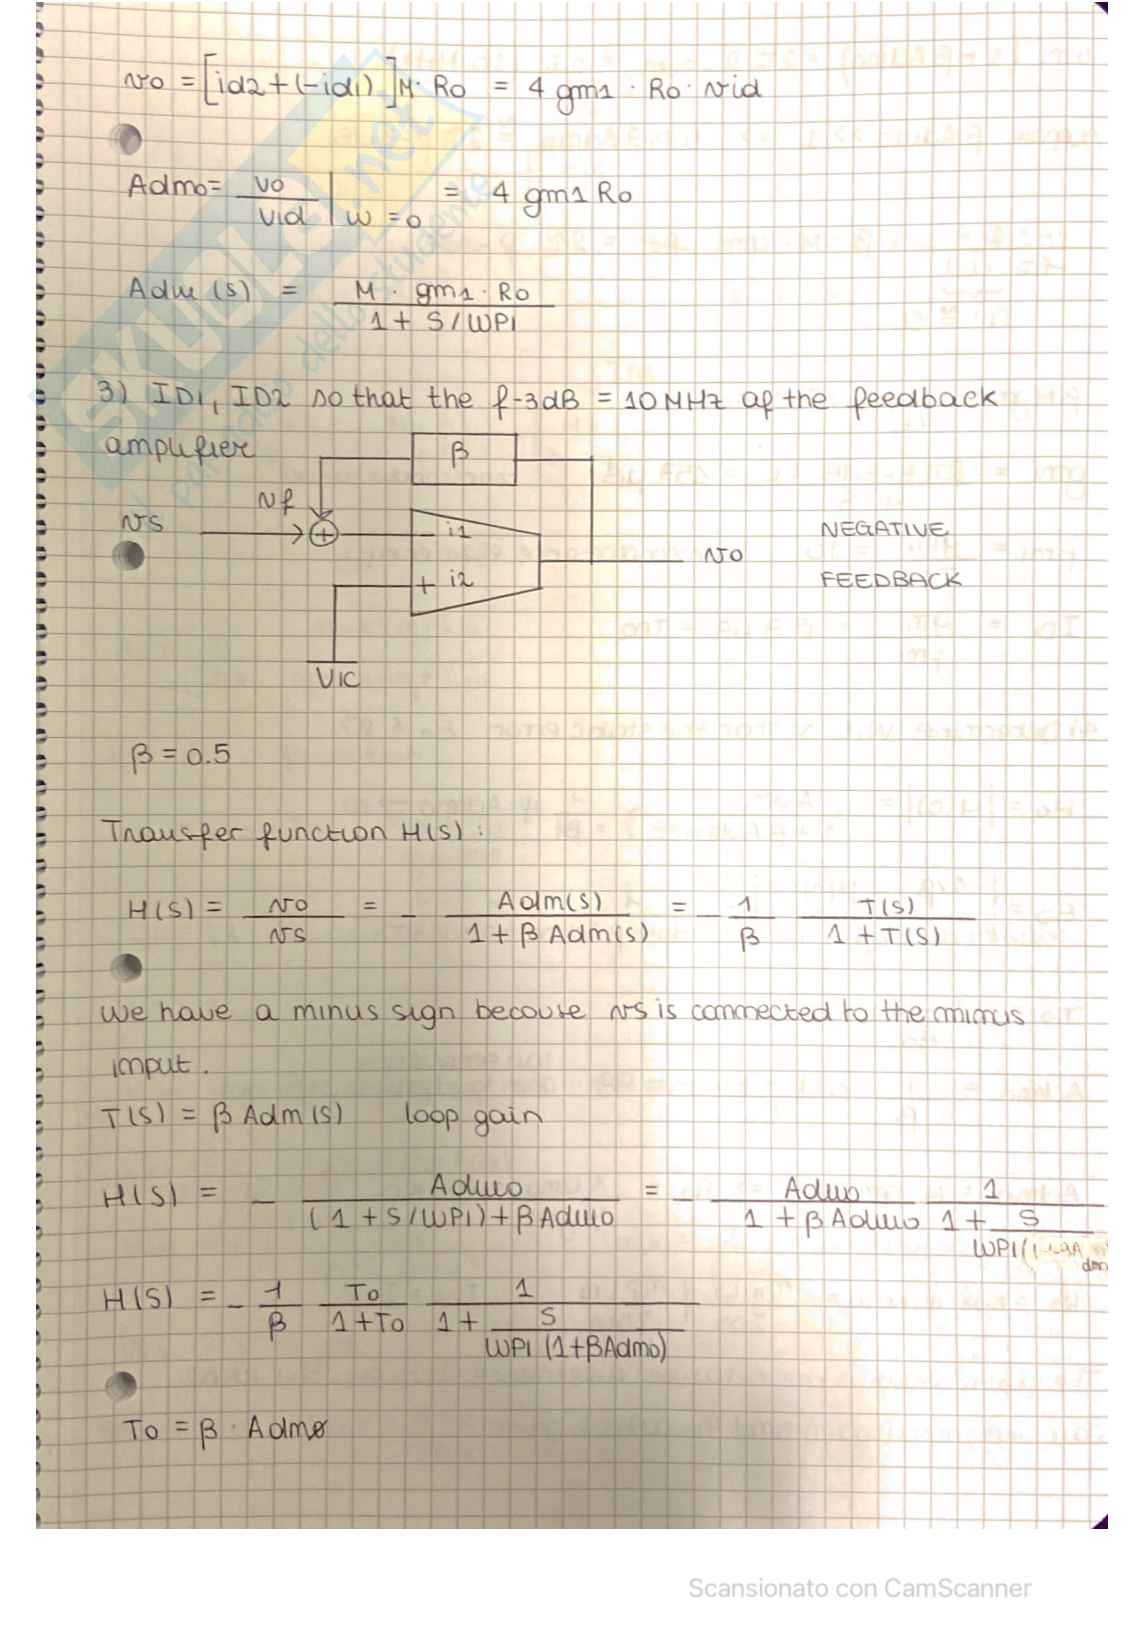 vo = [id2+(-id1)]M· Ro = 4 gm1 · Ro· vid
Admo= vo / vid | w=0 = 4 gm1 Ro
Adm (s) = M · gm1 · Ro / 1 + S / WP1
3) ID1, ID2 so that the f-3dB = 10 MHz of the feedback
amplifier
β
vf
vs
i1
NEGATIVE
vo
+ i2
FEEDBACK
VIC
β = 0.5
Transfer function H(s) :
H(s) = vo / vs = - Adm(s) / 1 + β Adm(s) = - 1 / β T(s) / 1 + T(s)
we have a minus sign becouse vs is connected to the minus
imput .
T(s) = β Adm (s) loop gain
H(s) = - Admo / (1 + S / WP1) + β Admo = - Admo / 1 + β Admo 1 / 1 + S / WP1(1+βAdm
H(s) = - 1 / β To / 1+To 1 / 1 + S / WP1 (1+βAdmo)
To = β · Admo
Scansionato con CamScanner
SKUOLA.net